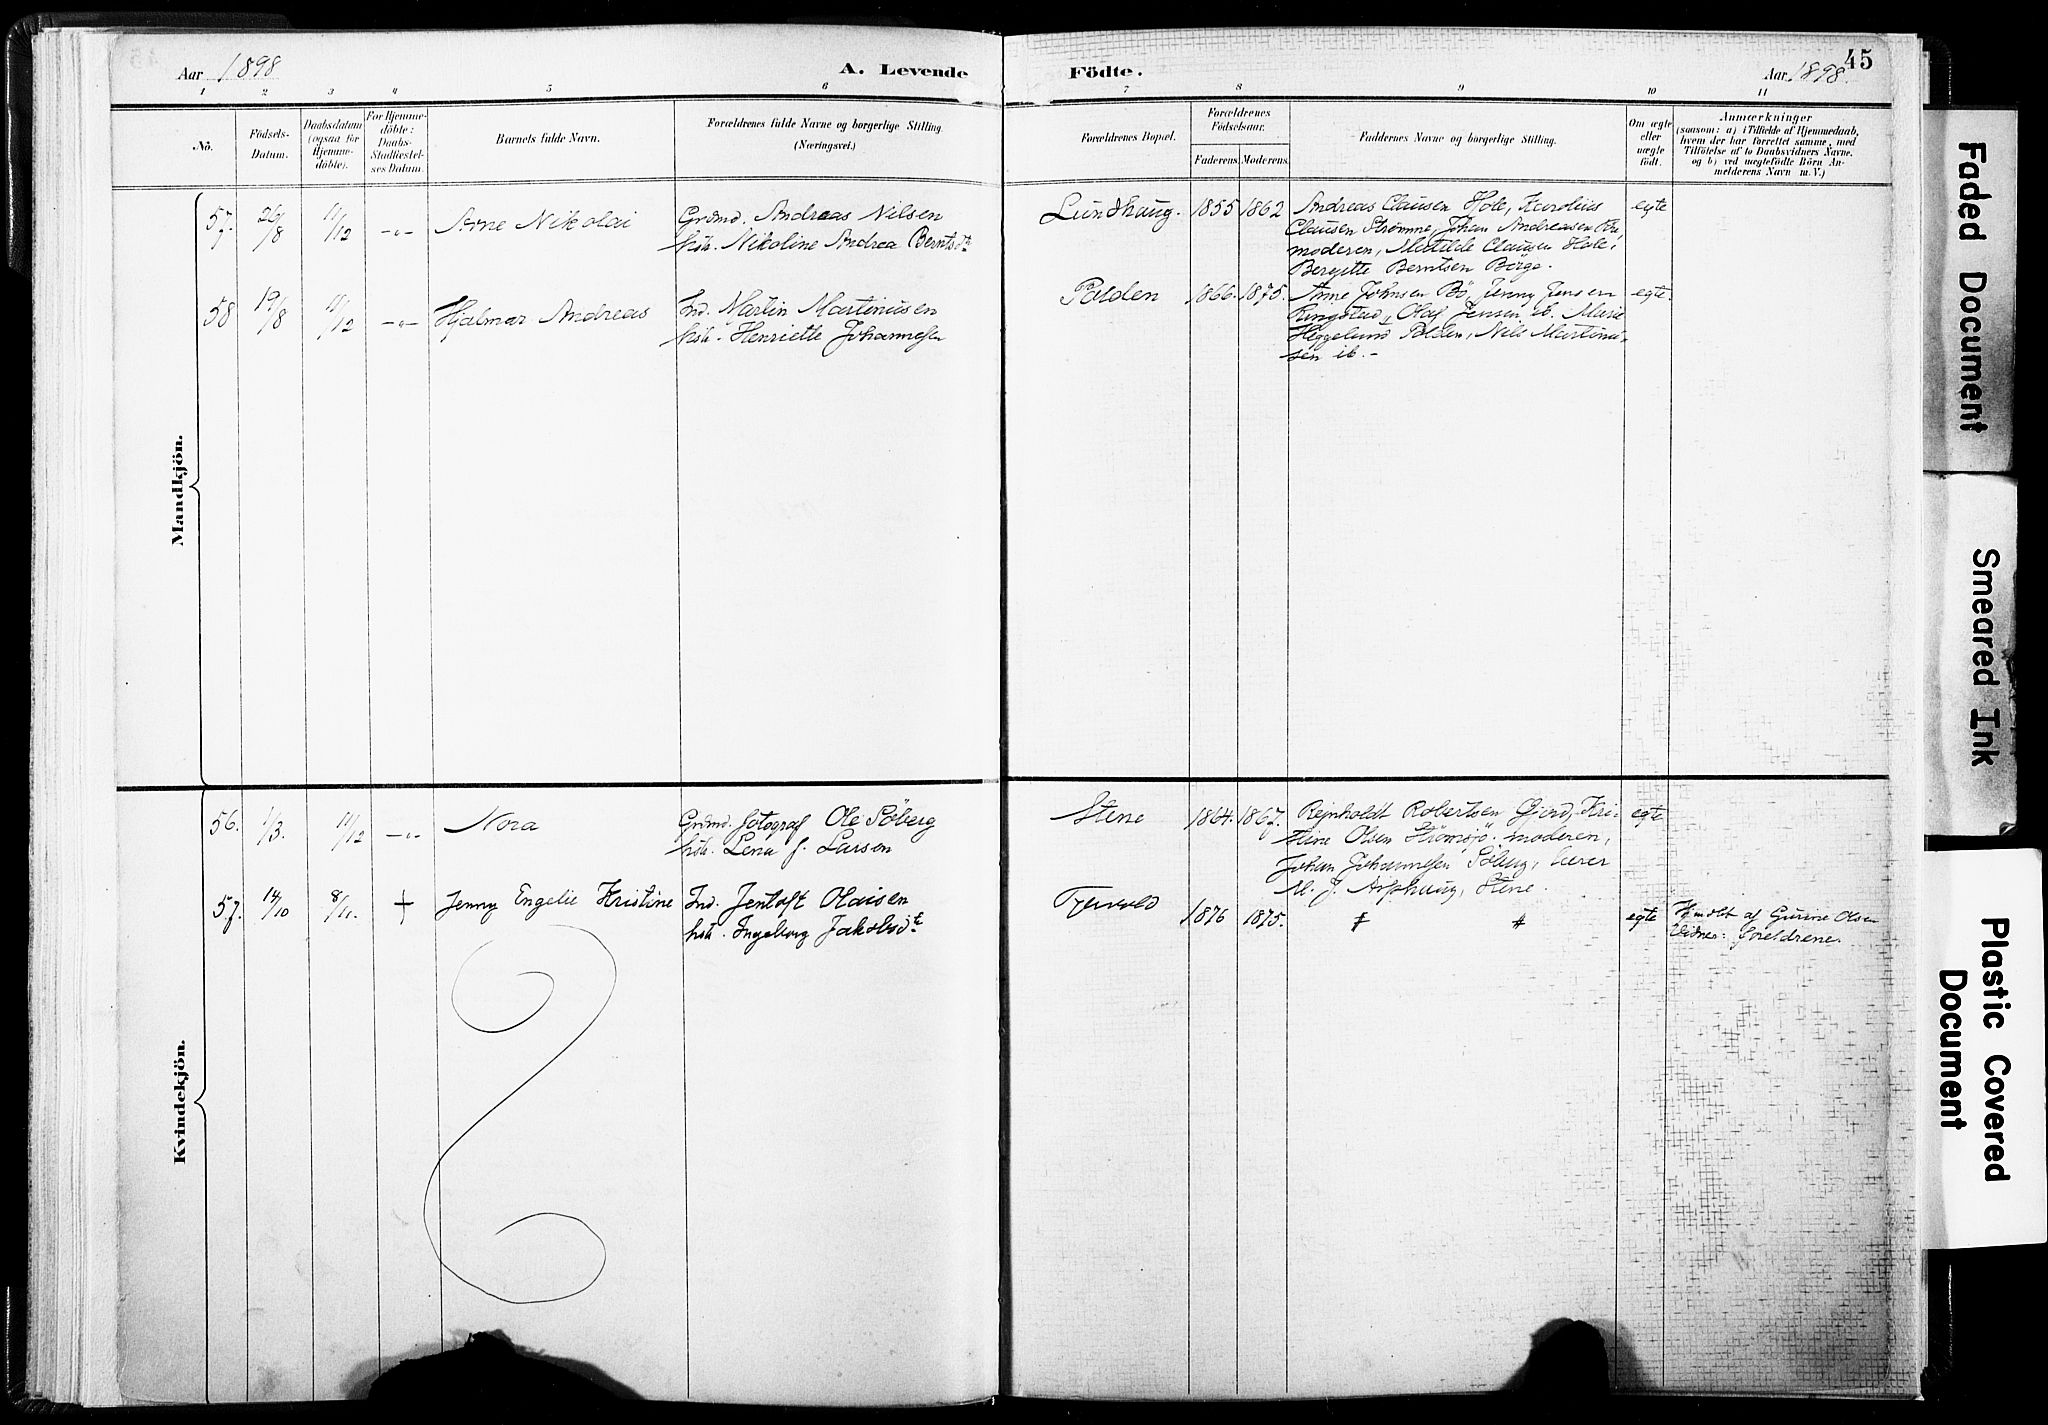 Aar 1898
A. Levende
Födte.
Aar 1898.
45
1 2 3 4 5 6 7 8 9 10 11
No.
Födsels-
Datum.
Daabsdatum
(ogsaa for
Hjemme-
döbte).
For Hjemme-
döbte:
Daabs-
Stadfæstel-
ses Datum.
Barnets fulde Navn.
Forældrenes fulde Navne og borgerlige Stilling.
(Næringsvei.)
Forældrenes Bopæl.
Forældrenes
Födselsaar.
Faderens. Moderens.
Faddernes Navne og borgerlige Stilling.
Om ægte
eller
uægte
födt.
Anmærkninger
(saasom: a) i Tilfælde af Hjemmedaab,
hvem der har forrettet samme, med
Tilföielse af to Daabsvidners Navne,
og b) ved uægtefödte Börn An-
melderens Navn m. V.)
Mandkjön.
57. 26/8 11/12 -"- Arne Nikolai
Grdmd. Andreas Nilsen
hstr. Nikoline Andrea Berntsdtr
Lundhaug. 1855 1862
Andreas Clausen Hole, Karolius
Clausen Strömme, Johan Andreasen
moderen, Matilde Clausen Hole,
Bergitte Berntsen Börge.
egte
58 19/8 11/12 -"- Hjalmar Andreas
Ind. Martin Martinusen
hstr. Henriette Johannesen
Polden 1866. 1875.
Anne Johnsen Bö, Jenny Jensen
Ringstad, Olaf Jensen ib. Marie
Heggelund Polden, Nils Martinu-
sen ib. -
egte.
Kvindekjön.
56. 1/3. 11/12 -"- Nora
Grdmd. fotograf Ole Söberg
hstr. Lena f. Larsen
Stene 1864. 1867.
Rejnholdt Robertsen Gjerd, Kri-
stine Olsen Strömsjö, moderen,
Johan Johannesen Söberg, lærer
M. J. Asphaug, Stene.
egte
57. 14/10 8/11. + Jenny Engelie Kristine
Ind. Jentoft Olaisen
hstr. Ingeborg Jakobsdt
1876 1875. # # egte
Hjmdbt af Gurine Olsen
Vidner: foreldrene.
Faded Document
Smeared Ink
Plastic Covered
Document